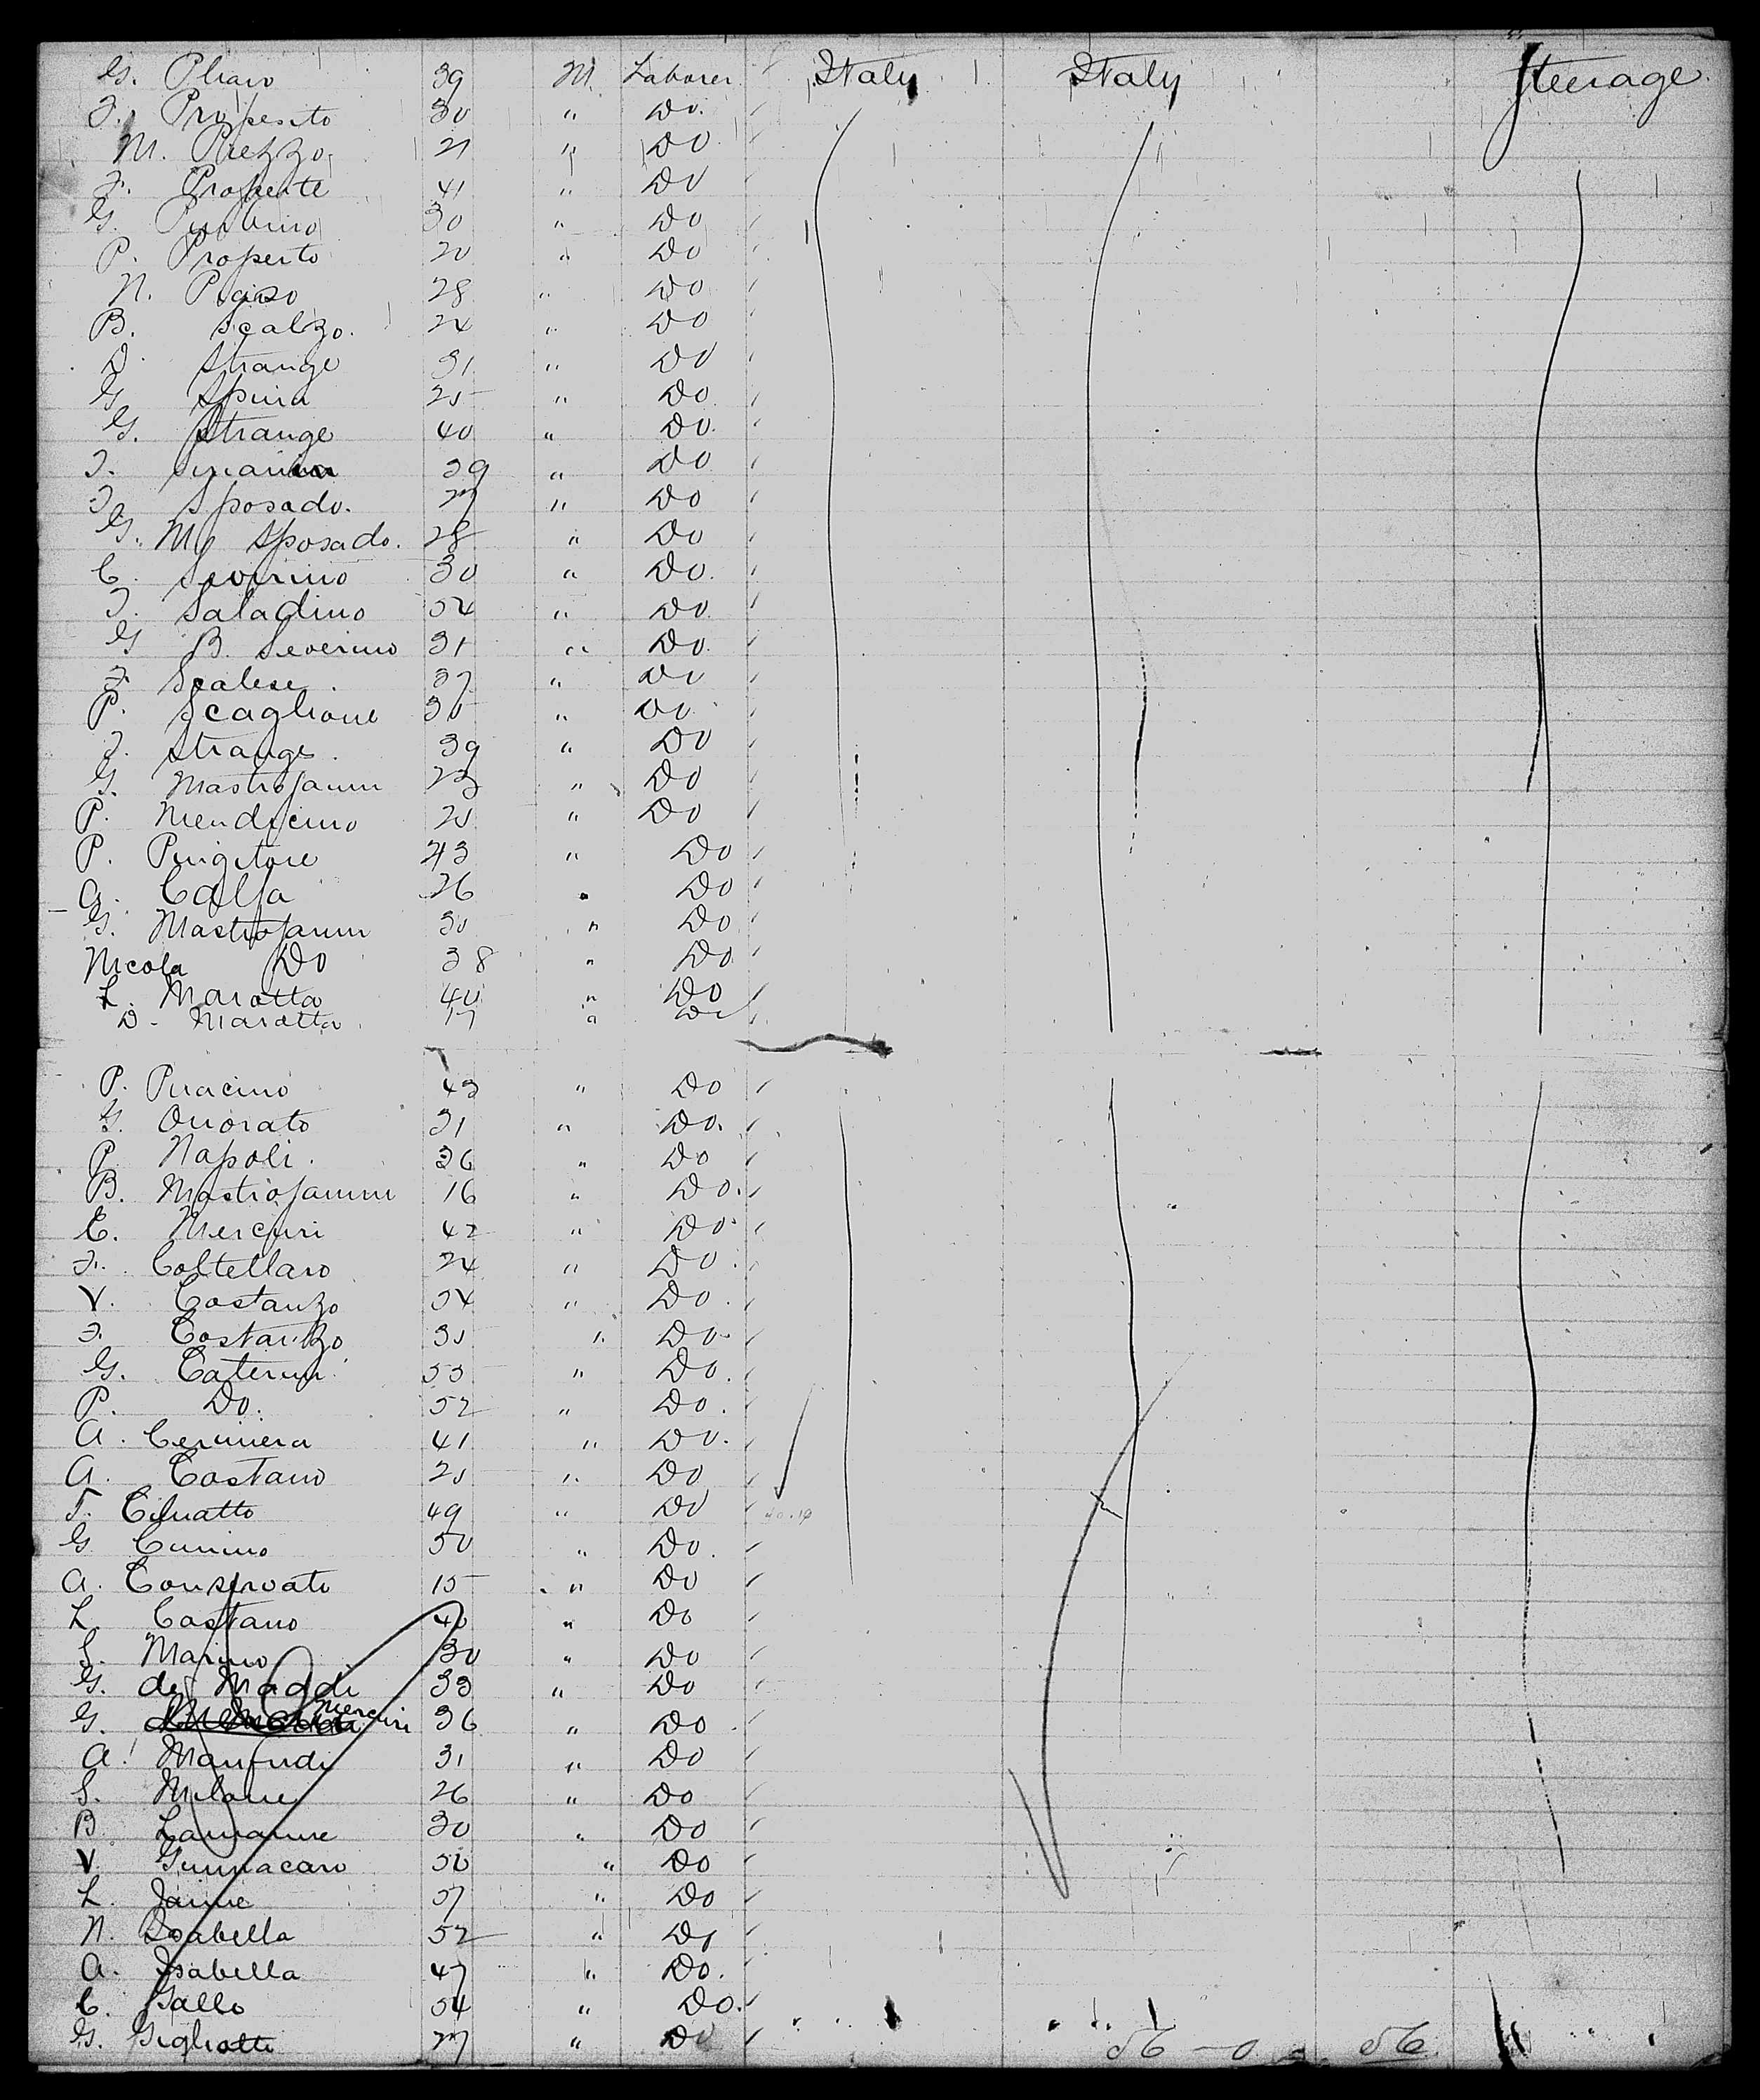 G. Pliaro 39 M. Laborer Italy Italy Steerage
F. Properito 30 " Do.
M. Piezzo 21 " Do
F. Properte 41 " Do
G. 30 " Do
P. Properto 20 " Do
N. 28 " Do
B. Scalzo. 24 " Do
D. Strange 31 " Do
G. Spina 25 " Do
G. Strange 40 " Do.
F. 39 " Do
F. Sposado. 27 " Do
G. M. Sposado. 28 " Do
C. Severino 30 " Do.
F. Saladino 54 " Do.
G B. Severino 31 " Do.
F. Scalese. 37 " Do
P. Scaglione 35 " Do.
F. Strange. 39 " Do
G. Mastrojanni 23 " Do
P. Mendicino 25 " Do
P. Pingitore 43 " Do
A. Calfa 26 " Do
G. Mastrojanni 30 " Do
Nicola Do 38 " Do
L. Marotta 40 " Do
D. Marotta 17 " Do
P. Piracino 43 " Do
G. Onorato 31 " Do.
P. Napoli. 36 " Do
B. Mastrojanni 16 " Do.
C. Mercuri 42 " Do.
F. Coltellaro 24 " Do.
V. Costanzo 54 " Do.
F. Costanzo 35 " Do.
G. Caterini 53 " Do.
P. Do. 52 " Do.
A. Cerminera 41 " Do.
A. Castano 25 " Do
F. 49 " Do
G Cimino 50 " Do.
A. Conservato 15 " Do
L. Castano 40 " Do
S. Marino 30 " Do
G. de Maddi 33 " Do
G. Mercuri 36 " Do
A. Manfredi 31 " Do
S. Milane 26 " Do
B. Lamanne 30 " Do
V. Gunnacaro 50 " Do
L. Janne 57 " Do
N. Isabella 52 " Do
A. Isabella 47 " Do.
C. Gallo 54 " Do.
G. Gigliotti 27 " Do
56 - 0 56